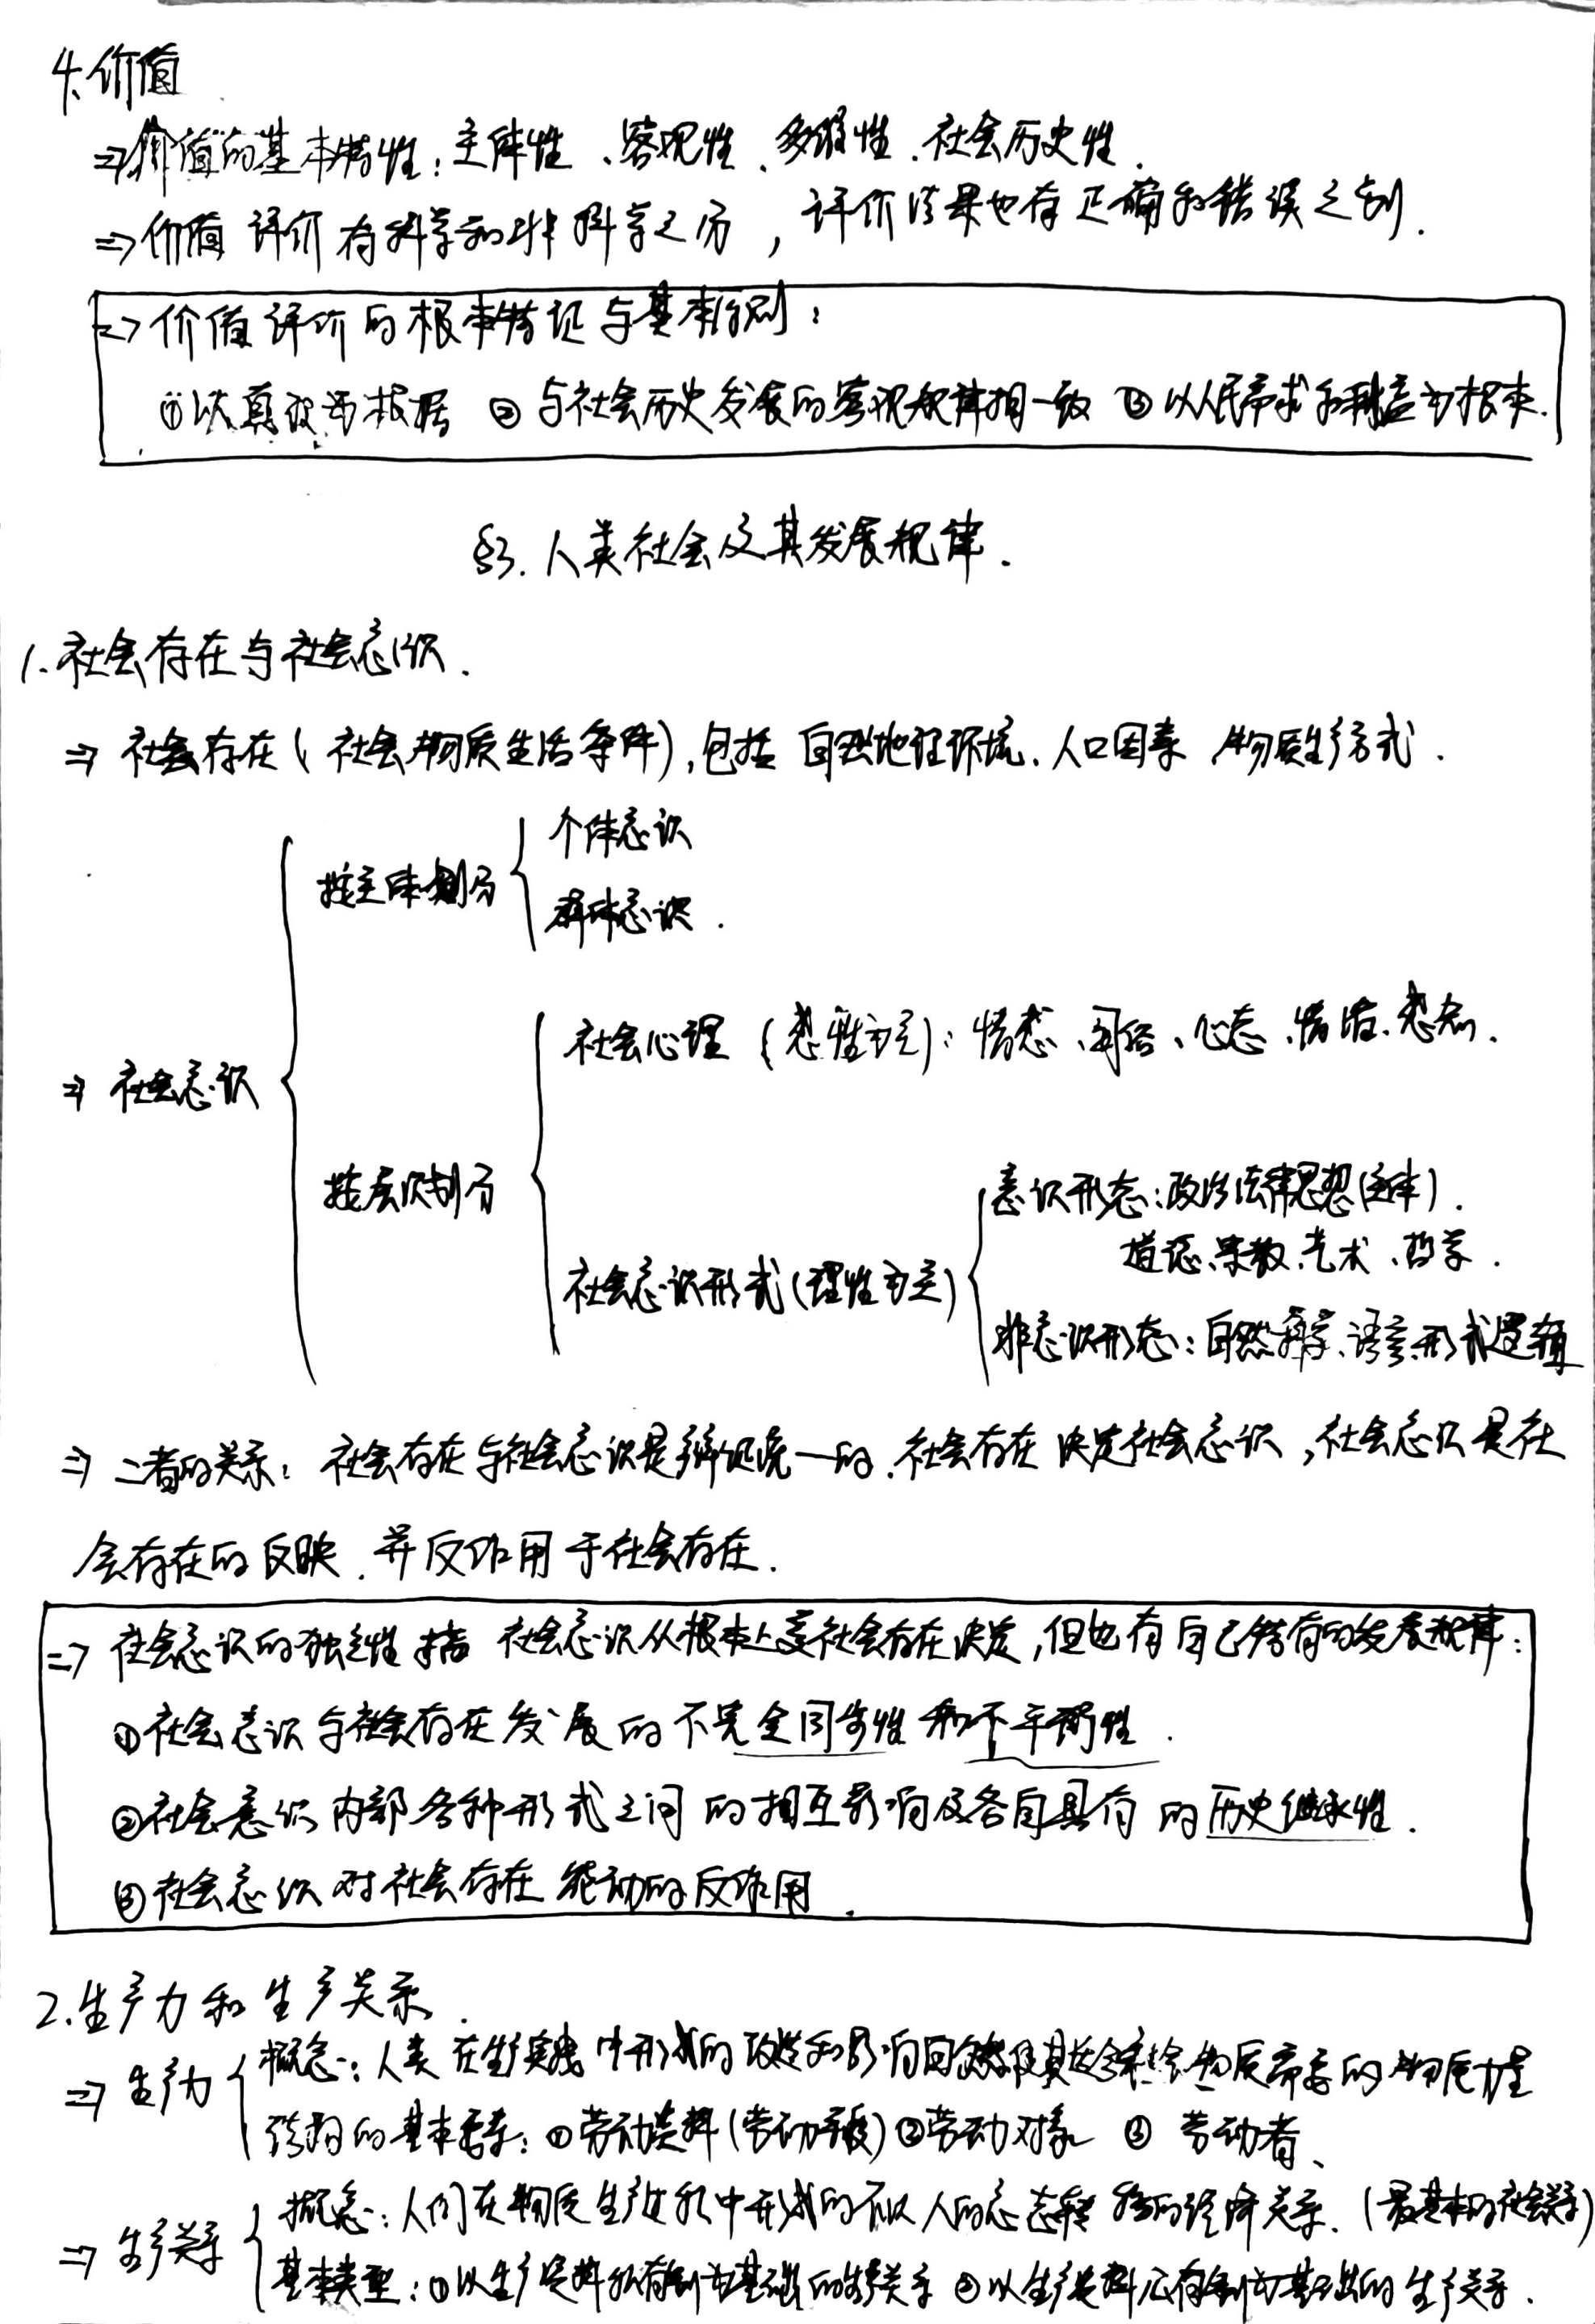 4.价值
⇒价值的基本特性：主体性、客观性、多维性、社会历史性.
⇒价值评价有科学和非科学之分，评价结果也有正确和错误之别.
⇒价值评价的根本特征与基本原则：
①以真理为根据 ②与社会历史发展的客观规律相一致 ③以人民需求和利益为根本.
§3.人类社会及其发展规律.
1.社会存在与社会意识.
⇒社会存在(社会物质生活条件),包括自然地理环境、人口因素、物质生产方式.
个体意识
按主体划分
群体意识.
社会心理(感性为主)：情感、习俗、心态、情绪、感知.
⇒社会意识
按层次划分
意识形态：政治法律思想(主体).
道德、宗教、艺术、哲学.
社会意识形式(理性为主)
非意识形态：自然科学、语言、形式逻辑
⇒二者的关系：社会存在与社会意识是辩证统一的.社会存在决定社会意识,社会意识是社
会存在的反映.并反作用于社会存在.
⇒社会意识的独立性指 社会意识从根本上受社会存在决定,但也有自己特有的发展规律：
①社会意识与社会存在发展的不完全同步性和不平衡性.
②社会意识内部各种形式之间的相互影响及各自具有的历史继承性.
③社会意识对社会存在能动的反作用.
2.生产力和生产关系.
概念：人类在生产实践中形成的改造和影响自然以使其适合社会物质需要的物质力量
⇒生产力
结构的基本要素：①劳动资料(劳动手段)②劳动对象 ③劳动者、
概念：人们在物质生产过程中形成的不以人的意志转移的经济关系.(最基本的社会关系)
⇒生产关系
基本类型：①以生产资料公有制为基础的生产关系 ②以生产资料私有制为基础的生产关系.